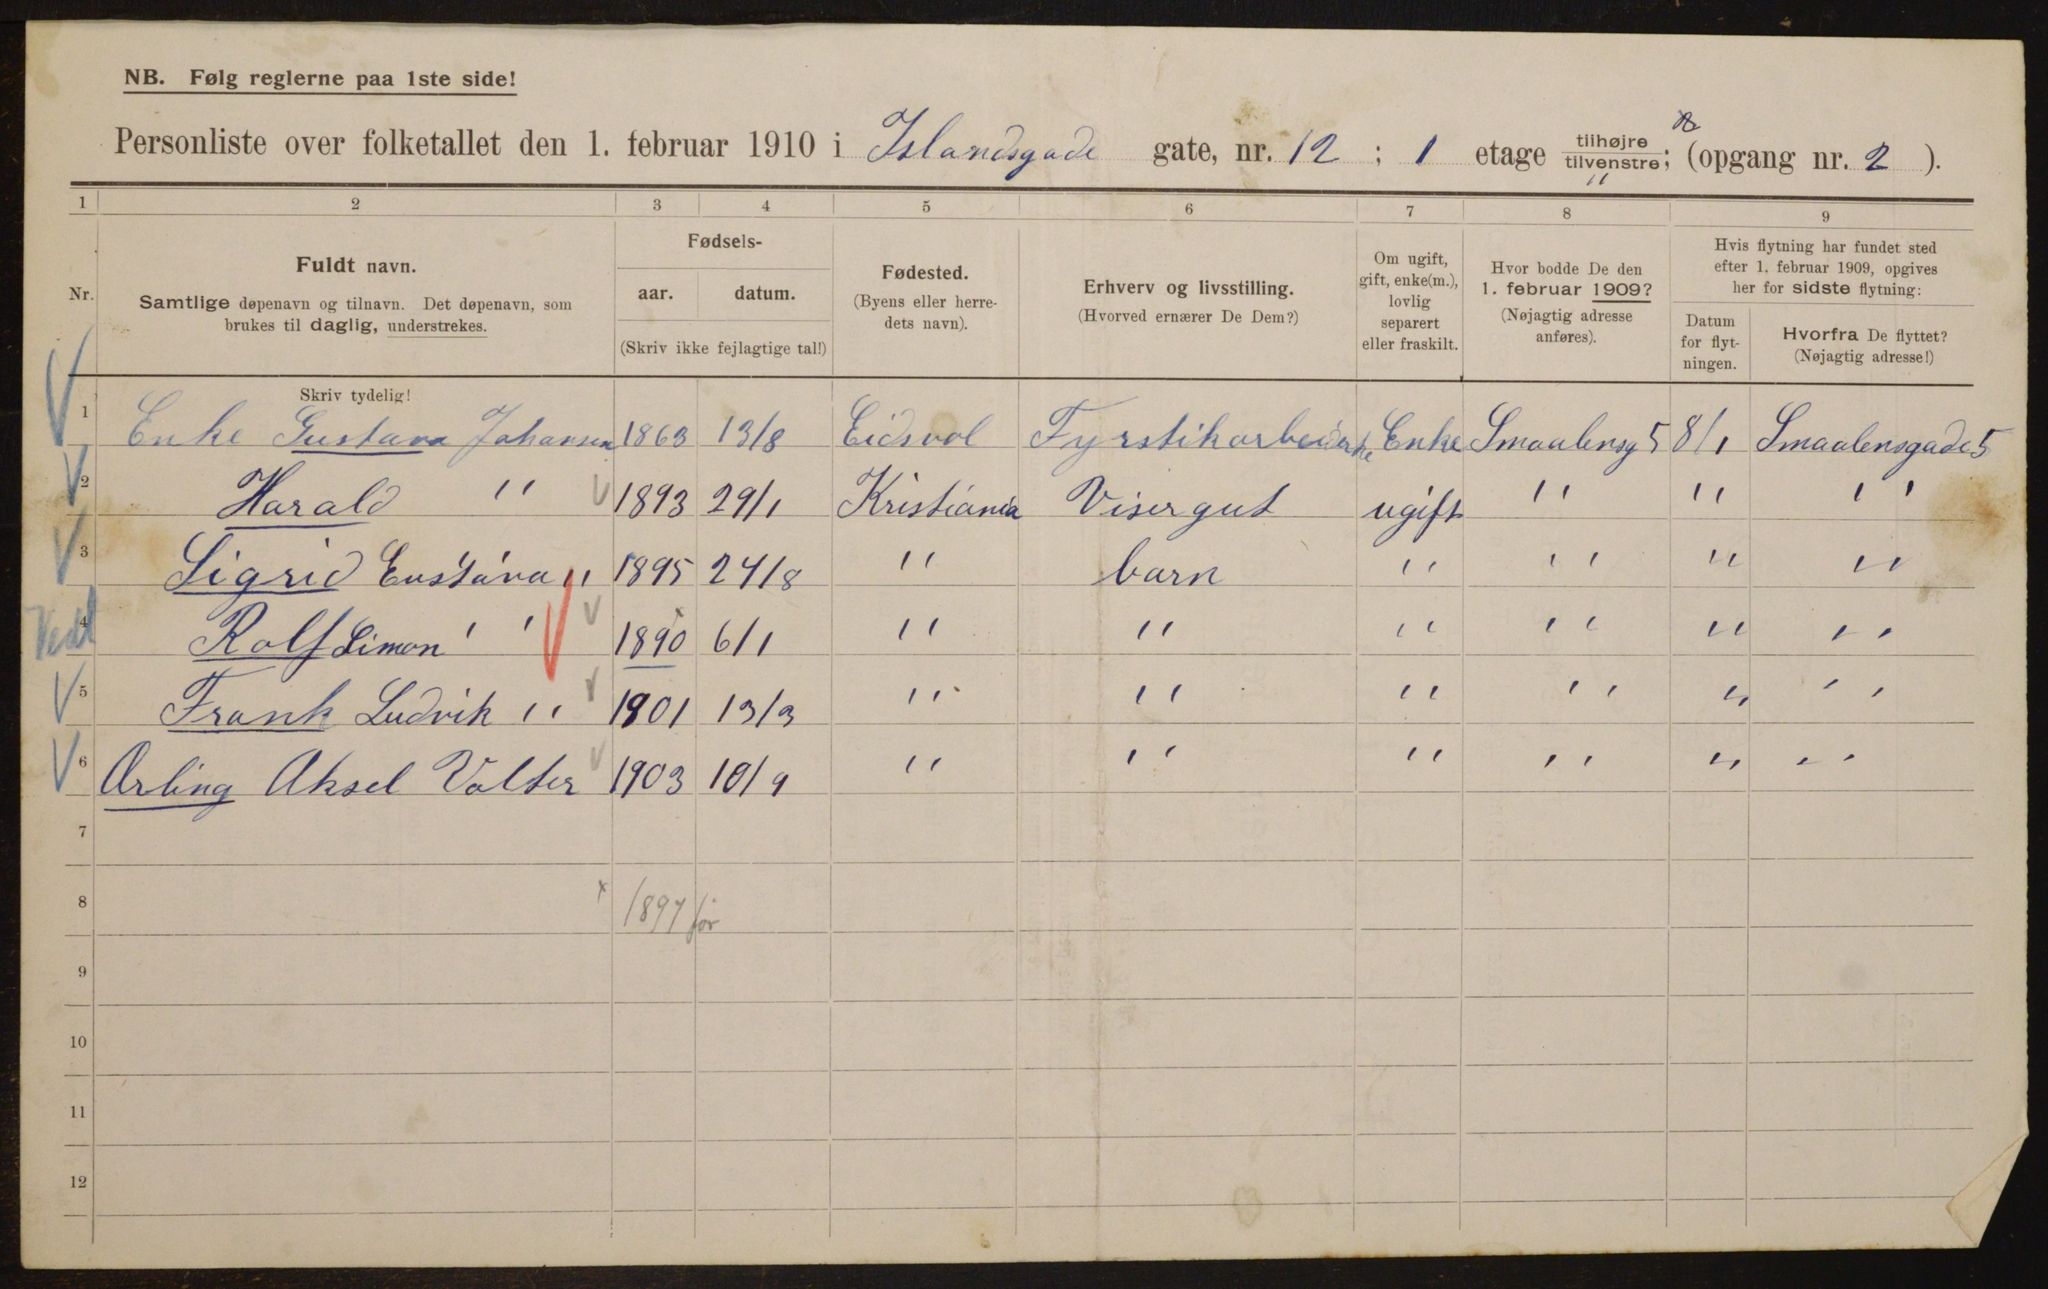 NB. Følg reglerne paa 1ste side!
Personliste over folketallet den 1. februar 1910 i Islandsgade gate, nr. 12 ; 1 etage tilhøjre tilvenstre; (opgang nr. 2 ).
1 2 3 4 5 6 7 8 9
Nr.
Fuldt navn.
Samtlige døpenavn og tilnavn. Det døpenavn, som
brukes til daglig, understrekes.
Fødsels-
aar. datum.
(Skriv ikke fejlagtige tal!)
Fødested.
(Byens eller herre-
dets navn).
Erhverv og livsstilling.
(Hvorved ernærer De Dem?)
Om ugift,
gift, enke(m.),
lovlig
separert
eller fraskilt.
Hvor bodde De den
1. februar 1909?
(Nøjagtig adresse
anføres).
Hvis flytning har fundet sted
efter 1. februar 1909, opgives
her for sidste flytning:
Datum
for flyt-
ningen.
Hvorfra De flyttet?
(Nøjagtig adresse!)
Skriv tydelig!
1 Enke Gustava Johansen 1863 13/8 Eidsvol Fyrstikarbeiderske Enke Smaalensg 5 8/1 Smaalensgade 5
2 Harald " 1893 29/1 Kristiania Visergut ugift " " "
3 Sigrid Gustava " 1895 24/8 " barn " " " "
4 Rolf Simon " 1890 6/1 " " " " " "
5 Frank Ludvik " 1901 13/3 " " " " " "
6 Arling Aksel Valter 1903 10/9 " " " " " "
7
8 1897 før
9
10
11
12